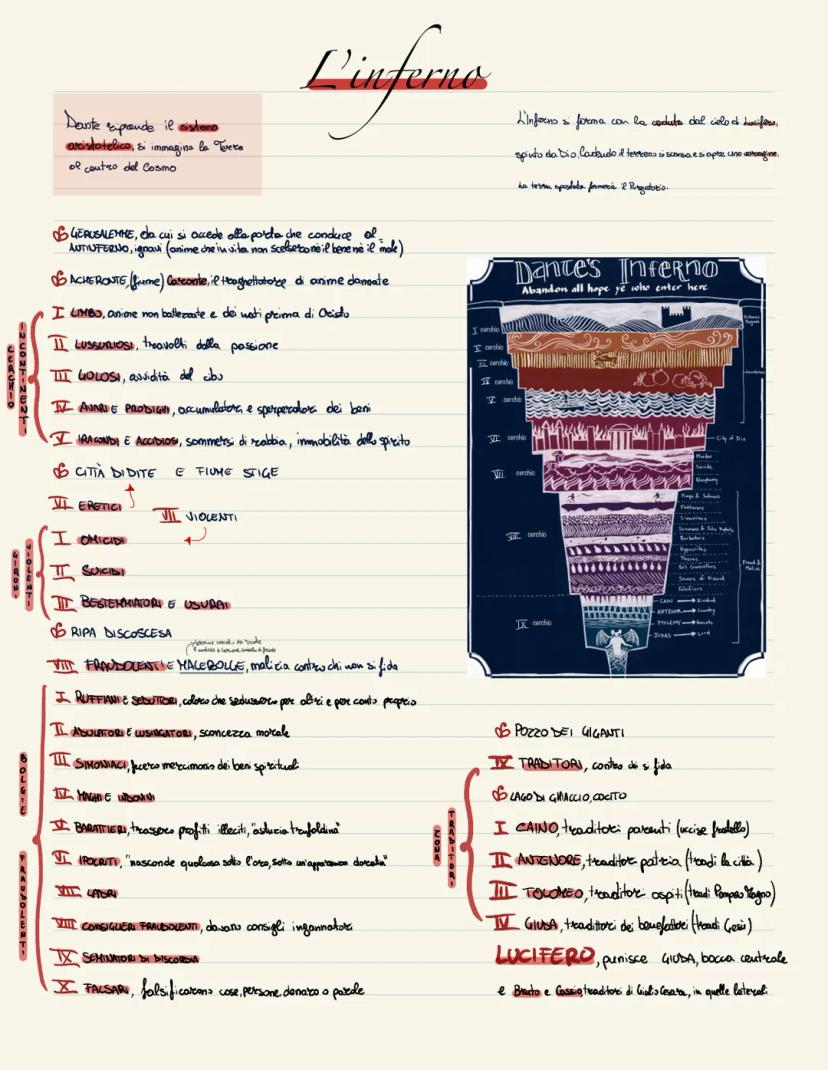 L'inferno
Dante riprende il sistema
aristotelico, si immagina la Terra
al centro del Cosmo
L'Inferno si forma con la caduta dal cielo di Lucifero,
spinto da Dio. Cadendo il terreno si scansa e si apre una voragine.
La terra spostata formerà il Purgatorio.
GERUSALEMME, da cui si accede alla porta che conduce al
ANTINFERNO, ignavi (anime che in vita non scelsero nè il bene nè il male)
ACHERONTE (fiume) Caronte, il traghettatore di anime dannate
CERCHIO INCONTINENTI
I LIMBO, anime non battezzate e dei nati prima di Cristo
II LUSSURIOSI, travolti dalla passione
III GOLOSI, avidità del cibo
IV AVARI E PRODIGHI, accumulatori e sperperatori dei beni
V IRACONDI E ACCIDIOSI, sommersi di rabbia, immobilità dello spirito
CITTÀ DI DITE E FIUME STIGE
VI ERETICI
VII VIOLENTI
GIRONI VIOLENTI
I OMICIDI
II SUICIDI
III BESTEMMIATORI E USURAI
RIPA DISCOSCESA
VIII FRAUDOLENTI E MALEBOLGE, malizia contro chi non si fida
BOLGIE FRAUDOLENTI
I RUFFIANI E SEDUTORI, coloro che sedussero per altri e per conto proprio
II ADULATORI E LUSINGATORI, sconcezza morale
III SIMONIACI, fecero mercimonio dei beni spirituali
IV MAGHI E INDOVINI
V BARATTIERI, trassero profitti illeciti, "astuzia truffaldina"
VI IPOCRITI, "nasconde qualcosa sotto l'oro, sotto un'apparenza dorata"
VII LADRI
VIII CONSIGLIERI FRAUDOLENTI, davano consigli ingannatori
IX SEMINATORI DI DISCORDIA
X FALSARI, falsificarono cose, persone, denaro o parole
Dante's Inferno
Abandon all hope ye who enter here
I cerchio
II cerchio
III cerchio
IV cerchio
V cerchio
VI cerchio
City of Dis
VII cerchio
Murder
Suicide
Blasphemy
VIII cerchio
Pimps & Seducers
Flatterers
Simoniacs
Sorcerers & False Prophets
Barrators
Hypocrites
Thieves
Evil Counsellors
Sowers of Discord
Falsifiers
Fraud & Malice
IX cerchio
CAIN → Kindred
ANTENOR → Country
PTOLEMY → Guests
JUDAS → Lord
POZZO DEI GIGANTI
IX TRADITORI, contro chi si fida
LAGO DI GHIACCIO, COCITO
ZONA TRADITORI
I CAINO, traditori parenti (uccise fratello)
II ANTENORE, traditori patria (tradì la città)
III TOLOMEO, traditori ospiti (tradì Pompeo Magno)
IV GIUDA, tradittori dei benefattori (tradì Gesù)
LUCIFERO, punisce GIUDA, bocca centrale
e Bruto e Cassio, traditori di Giulio Cesare, in quelle laterali